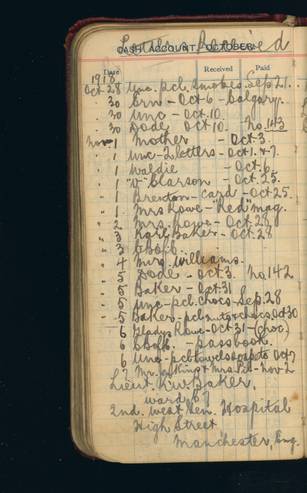 Letters Received
CASH ACCOUNT. OCTOBER.
Date Received Paid
1918
Oct. 28 Unc. pcl. smokes. Sep. 21.
30 Erw - Oct 6 - Calgary.
30 Unc - Oct. 10.
30 Dode Oct 10. No. 143
Nov 1 Mother - Oct 3.
1 Unc - 2 letters - Oct 1. & 7.
1 Waldie Oct 6.
1 "V" Clarson - Oct. 25.
1 Brenton - card - Oct 25.
1 Mrs Rowe - "Red" mag.
2 Mrs Rowe - Oct 29
3 Karl Baker - Oct. 28
3 CBofC.
4 Mrs. Williams.
5 Dode - Oct 3. No 142
5 Baker - Oct 31
5 Unc - pcl. chocs - Sep. 28
5 Baker - pcl. nuts & chocs Oct 30
6 Gladys Rowe - Oct 31 - (choc)
6 CBofC. - passbook.
6 Unc - pcl. towel soap to Oct 7
7 Mr. & Mrs - Nov 2
Lieut. K.W. Baker,
ward 67
2nd. West Gen. Hospital
High Street
Manchester, Eng.